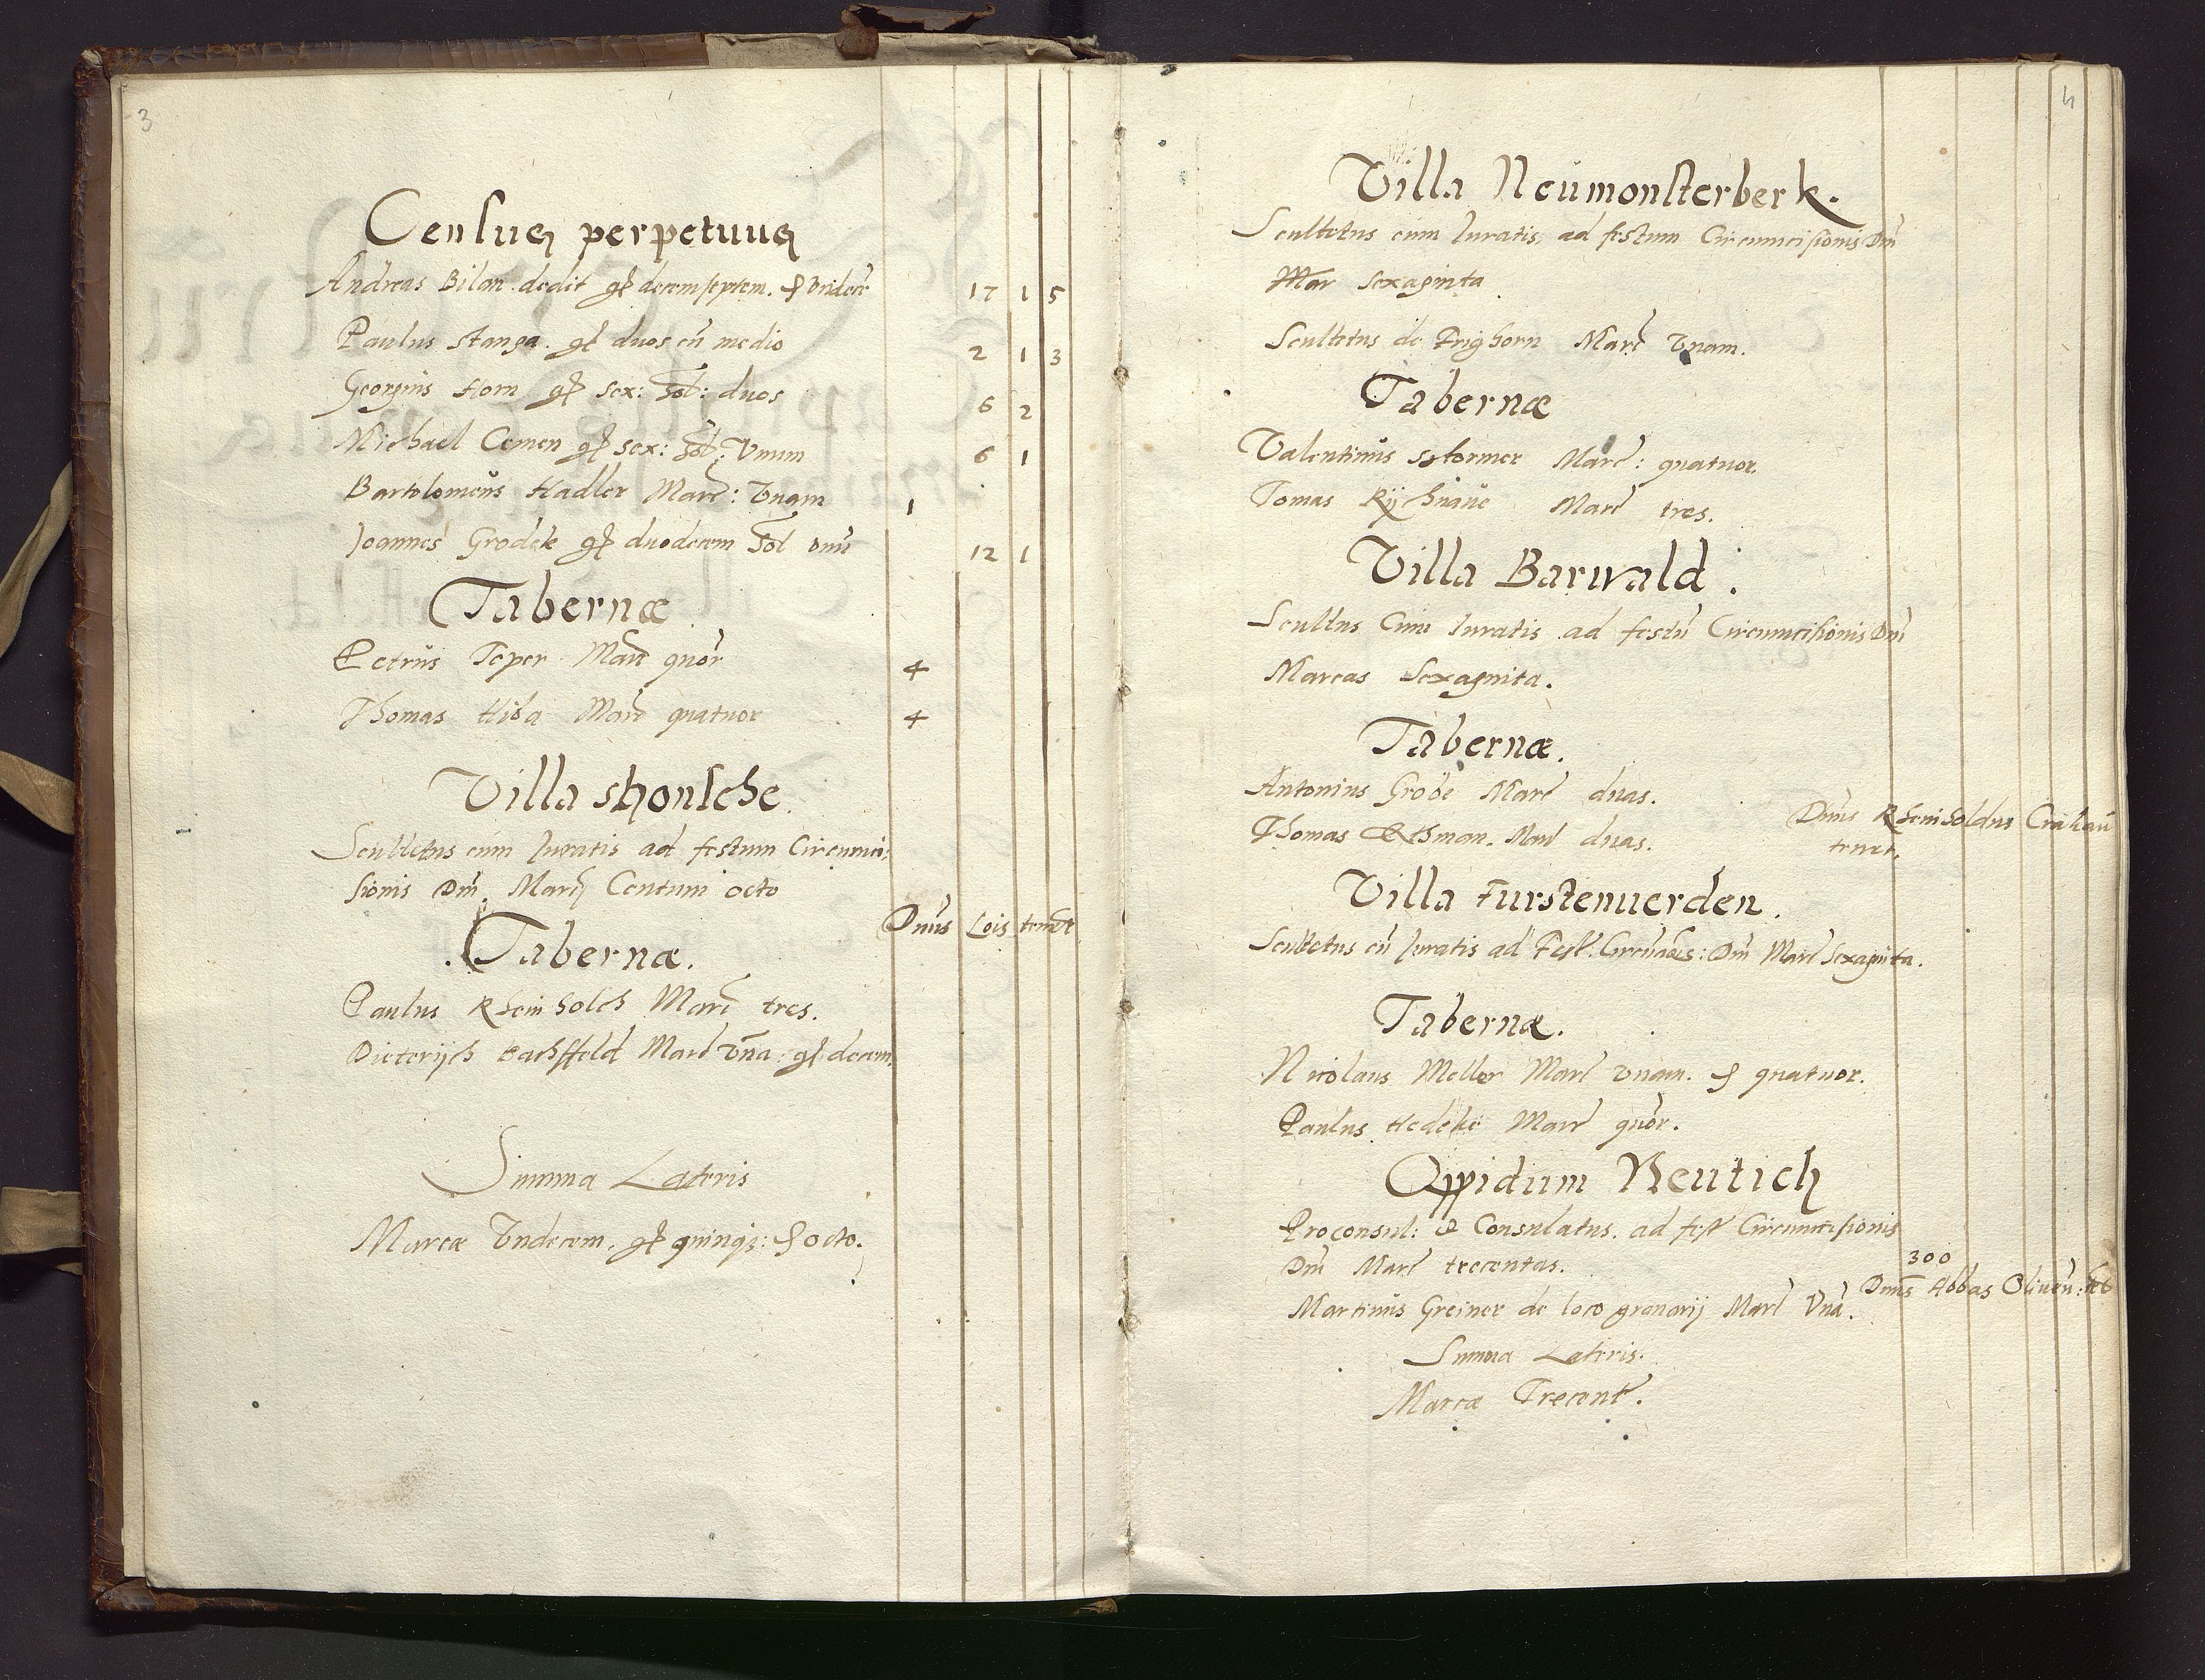 3
Census perpetuus
Andreas Bilan dedit gß decemseptem. ß vndeci 17 1 5
Paulus Stanga. gß duos cū medio 2 1 3
Georgius Horn gß sex: Sol: duos 6 2
Michael Cemen gß sex: Sol: Vnum 6 1
Bartolomeus Hadler Marc: Vnam 1
Joannes Grodek gß duodecem Sol vnū 12 1
Tabernæ
Petrus Teper Marc quor 4
Thomas Hiba Marc quatuor 4
Villa shonsehe
Scultetus cum Juratis ad festum Circumci:
sionis Dm̄. Marc Centum octo
Dnūs Lois tenet
Tabernæ.
Paulus Rheinholch Marc tres.
Dieterijch Bachffeld Marc vna: gß decem
Summa Lateris
Marcæ Vndecem, gß quinqz: ß octo.
4
Villa Neumonsterberk.
Scultetus cum Juratis, ad festum Circumcisionis Dm̄
Mar sexaginta
Scultetus de Prighorn Marc vnam.
Tabernæ
Valentinus Stormer Marc: quatuor.
Tomas Rijchnaue Marc tres.
Villa Barwald.
Scultus Cum Juratis ad festū Circumcisionis Dm̄
Marcas Sexaginta.
Tabernæ.
Antonius Grobe Marc duas.
Thomas Ethman. Marc duas.
Dnūs Rheinholdus Crakau
tenet.
Villa Furstenuerden.
Scultetus cū Juratis ad Fest. Circūcis: Dm̄ Marc Sexaginta.
Tabernæ.
Nicolaus Meller Marc vnam. ß quatuor.
Paulus Hedeke Marc quor.
Oppidum Neutich
Proconsul: & Consulatus. ad fest Circumcisionis
Dm̄ Marc trecentas. 300
Martinus Greiner de loco granarij Marc Vnā. Dnūs Abbas Oliuēn:
Summa Lateris.
Marcæ Trecent.